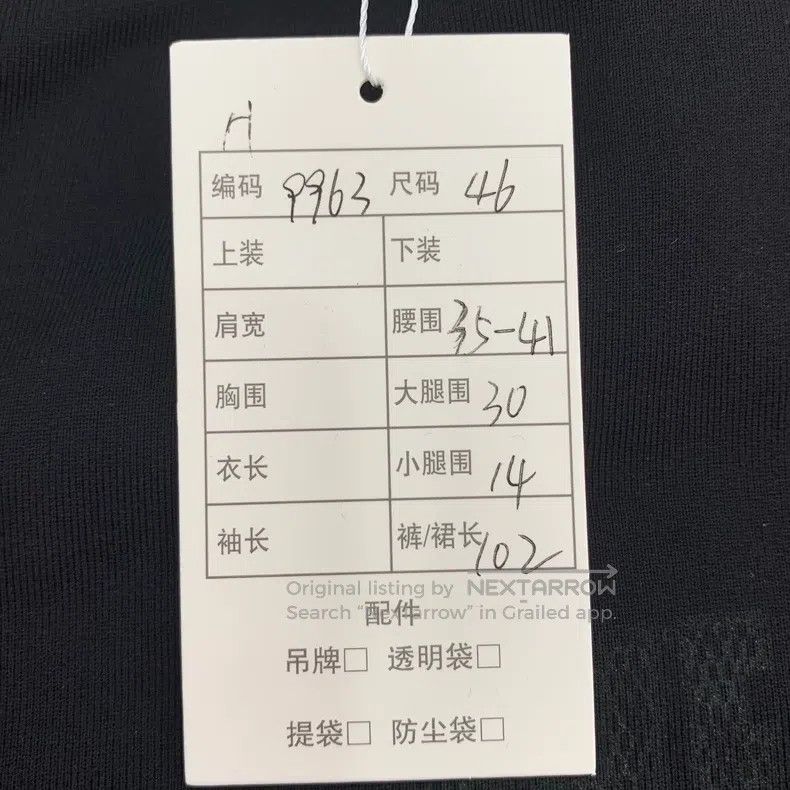 编码 9963 尺码 46
上装 下装
肩宽 腰围 35-41
胸围 大腿围 30
衣长 小腿围 14
袖长 裤/裙长 102
Original listing by NEXTARROW
Search “Nextarrow” in Grailed app.
配件
吊牌□ 透明袋□
提袋□ 防尘袋□